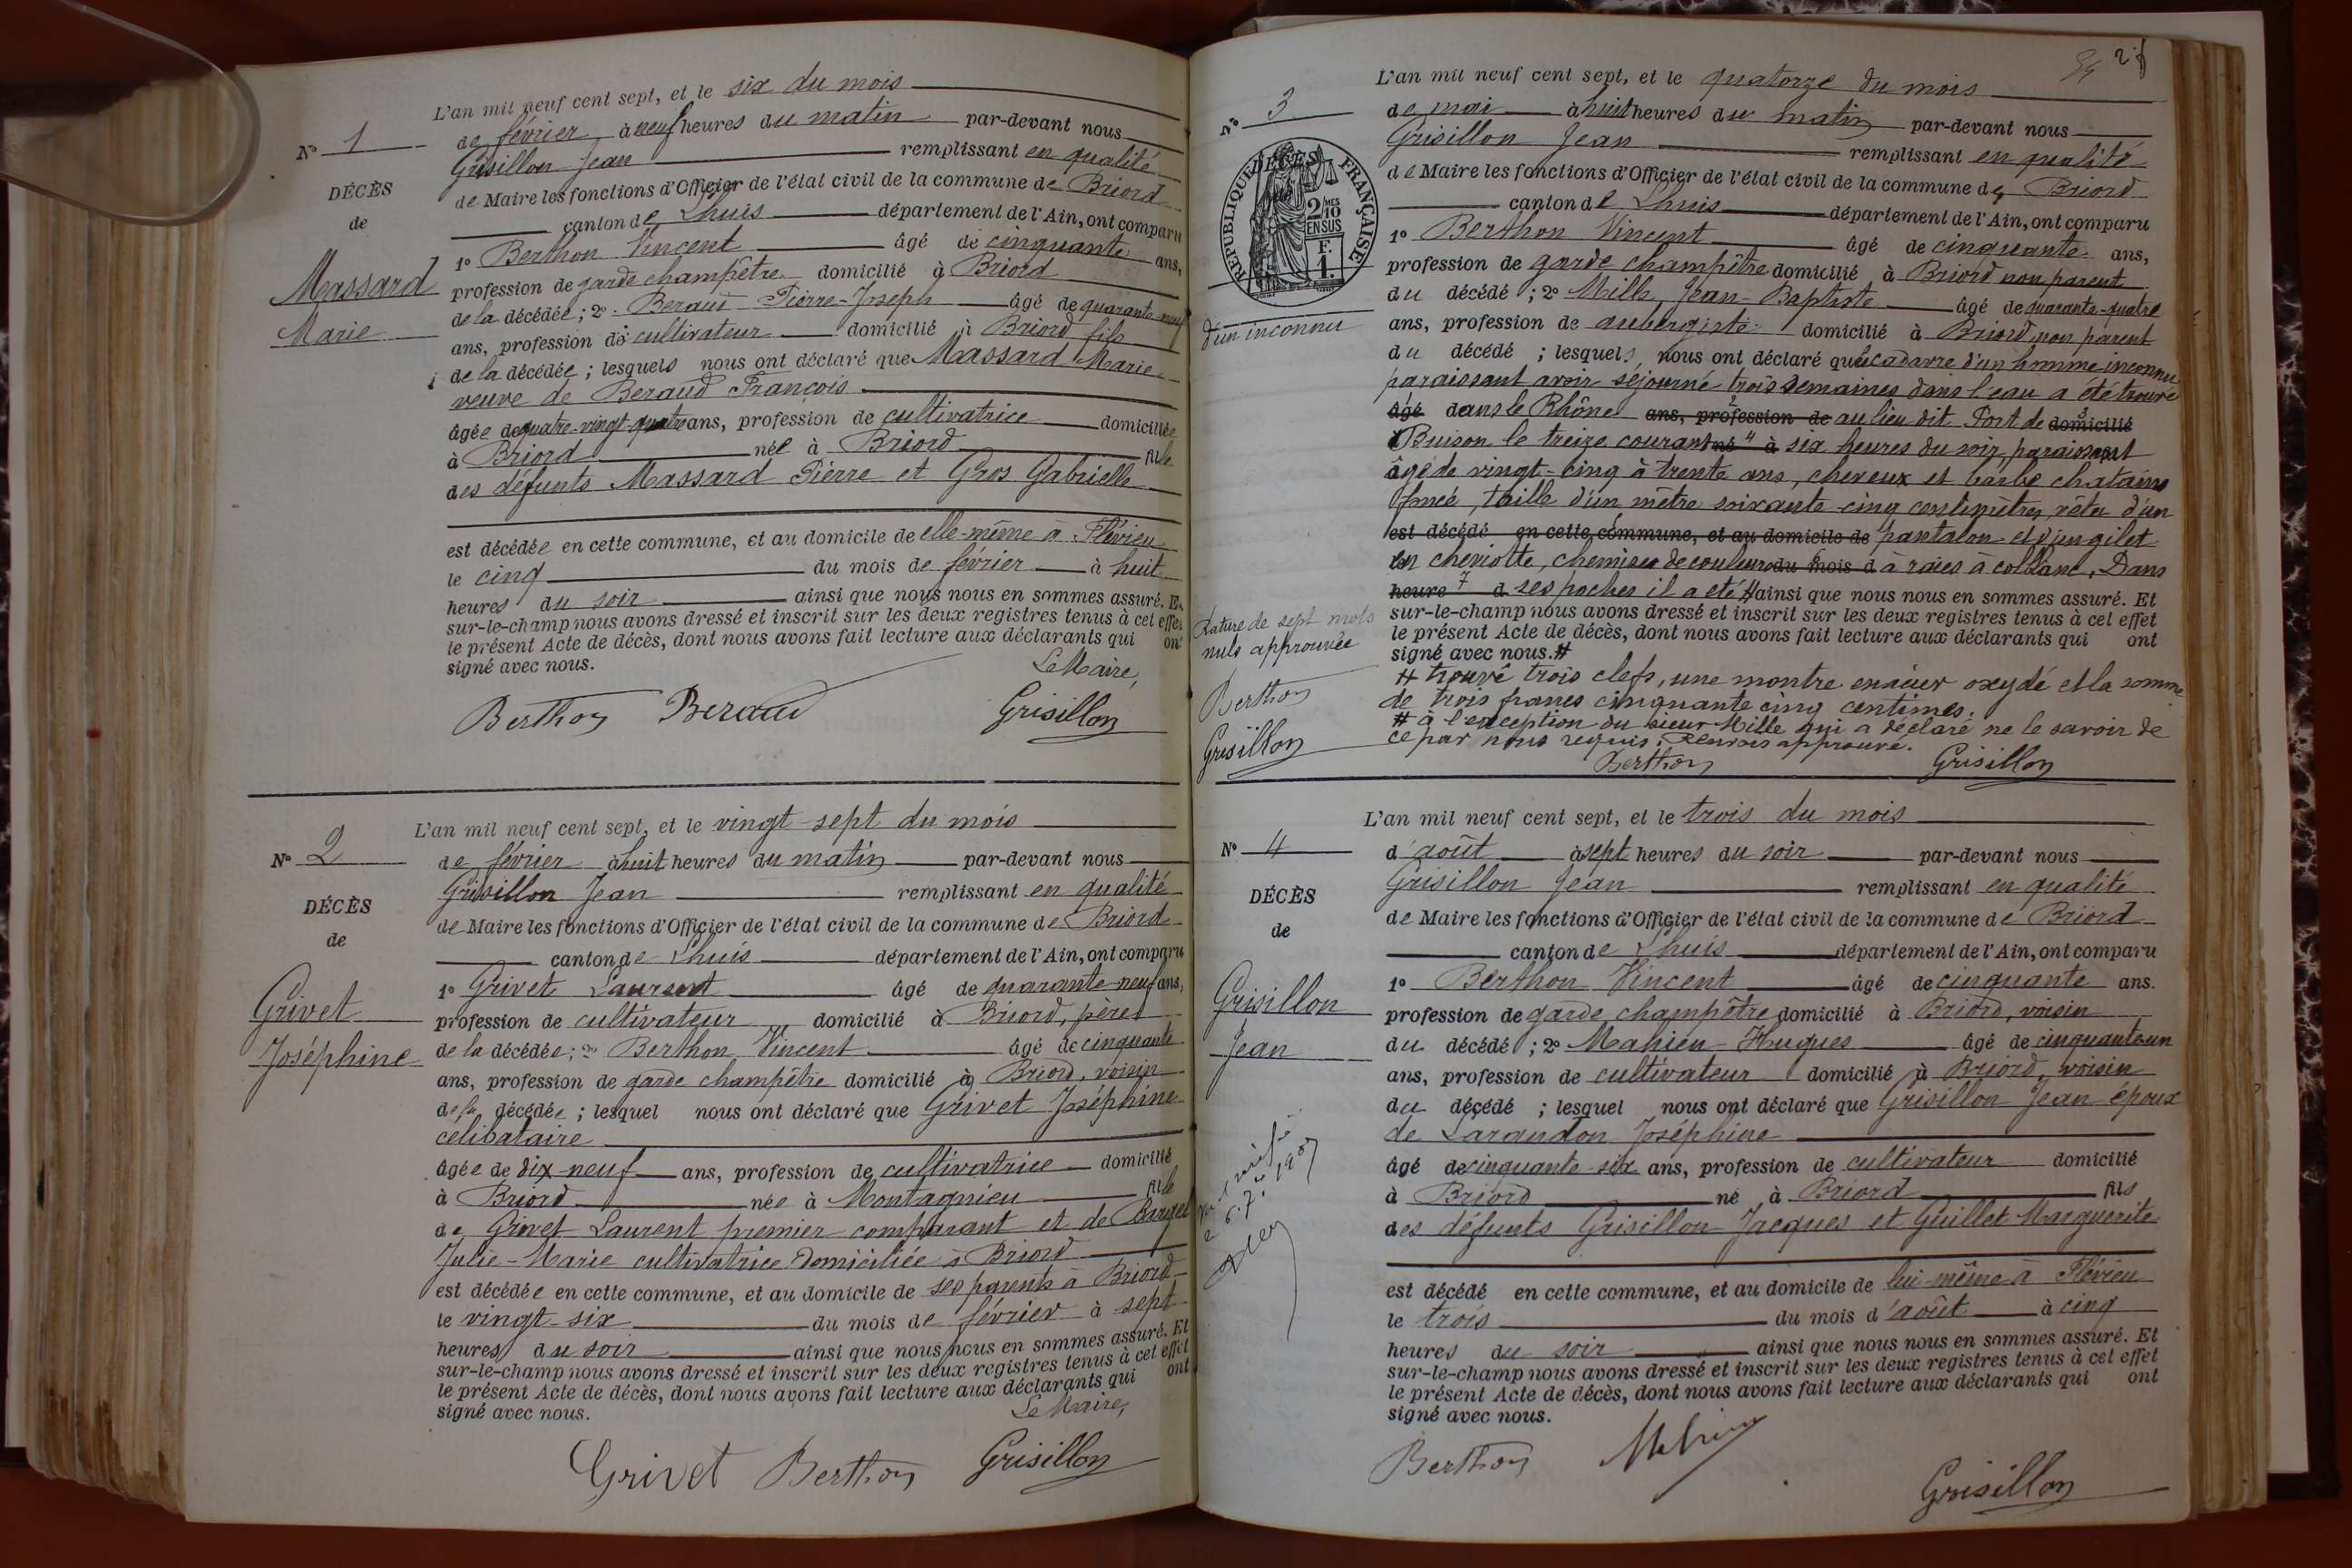 L'an mil neuf cent sept, et le six du mois
N° 1
de février à neuf heures du matin par-devant nous
Grisillon Jean remplissant en qualité
DÉCÈS
de Maire les fonctions d'Officier de l'état civil de la commune de Briord
de
canton de Lhuis département de l'Ain, ont comparu
1° Berthon Vincent âgé de cinquante ans,
Massard
profession de garde champêtre domicilié à Briord
Marie
de la décédée ; 2° Beraud Pierre-Joseph âgé de quarante-neuf
ans, profession de cultivateur domicilié à Briord fils
de la décédée ; lesquels nous ont déclaré que Massard Marie
veuve de Beraud François
âgée de quatre-vingt-quatre ans, profession de cultivatrice domiciliée
à Briord née à Briord fille
des défunts Massard Pierre et Gros Gabrielle
est décédée en cette commune, et au domicile de elle-même à Flévieu
le cinq du mois de février à huit
heures du soir ainsi que nous nous en sommes assuré. Et
sur-le-champ nous avons dressé et inscrit sur les deux registres tenus à cet effet
le présent Acte de décès, dont nous avons fait lecture aux déclarants qui ont
signé avec nous.
Le Maire,
Berthon Beraud Grisillon
L'an mil neuf cent sept, et le vingt-sept du mois
N° 2
de février à huit heures du matin par-devant nous
Grisillon Jean remplissant en qualité
DÉCÈS
de Maire les fonctions d'Officier de l'état civil de la commune de Briord
de
canton de Lhuis département de l'Ain, ont comparu
1° Grivet Laurent âgé de quarante-neuf ans,
Grivet
profession de cultivateur domicilié à Briord, père
Joséphine
de la décédée ; 2° Berthon Vincent âgé de cinquante
ans, profession de garde champêtre domicilié à Briord, voisin
de la décédée ; lesquel nous ont déclaré que Grivet Joséphine
célibataire
âgée de dix-neuf ans, profession de cultivatrice domicilié
à Briord née à Montagnieu fille
de Grivet Laurent premier comparant et de
Julie-Marie cultivatrice domiciliée à Briord
est décédée en cette commune, et au domicile de ses parents à Briord
le vingt-six du mois de février à sept
heures du soir ainsi que nous nous en sommes assuré. Et
sur-le-champ nous avons dressé et inscrit sur les deux registres tenus à cet effet
le présent Acte de décès, dont nous avons fait lecture aux déclarants qui ont
signé avec nous.
Le Maire,
Grivet Berthon Grisillon
L'an mil neuf cent sept, et le quatorze du mois
N° 3
de mai à huit heures du matin par-devant nous
Grisillon Jean remplissant en qualité
DÉCÈS
RÉPUBLIQUE FRANÇAISE
2/10 MES EN SUS
F. 1.
de Maire les fonctions d'Officier de l'état civil de la commune de Briord
canton de Lhuis département de l'Ain, ont comparu
1° Berthon Vincent âgé de cinquante ans,
profession de garde champêtre domicilié à Briord non parent
du décédé ; 2° Mille Jean-Baptiste âgé de quarante-quatre
d'un inconnu
ans, profession de aubergiste domicilié à Briord, non parent
du décédé ; lesquels nous ont déclaré que le cadavre d'un homme inconnu
paraissant avoir séjourné trois semaines dans l'eau a été trouvé
âgé dans le Rhône ans, profession de au lieu dit Port de domicilié
à Buison le treize courant né à six heures du soir, paraissant
âgé de vingt-cinq à trente ans, cheveux et barbe chatains
foncé, taille d'un mètre soixante-cinq centimètres, vêtu d'un
est décédé en cette commune, et au domicile de pantalon et d'un gilet
en cheviotte, chemise de couleur du mois d à raies à col blanc, Dans
heure d ses poches il a été # ainsi que nous nous en sommes assuré. Et
sur-le-champ nous avons dressé et inscrit sur les deux registres tenus à cet effet
le présent Acte de décès, dont nous avons fait lecture aux déclarants qui ont
signé avec nous. #
Rature de sept mots
nuls approuvée
Berthon
Grisillon
# trouvé trois clefs, une montre en acier oxydé et la somme
de trois francs cinquante cinq centimes.
# à l'exception du sieur Mille qui a déclaré ne le savoir de
ce par nous requis. Renvois approuvé.
Berthon Grisillon
L'an mil neuf cent sept, et le trois du mois
N° 4
d'août à sept heures du soir par-devant nous
Grisillon Jean remplissant en qualité
DÉCÈS
de Maire les fonctions d'Officier de l'état civil de la commune de Briord
de
canton de Lhuis département de l'Ain, ont comparu
1° Berthon Vincent âgé de cinquante ans.
Grisillon
profession de garde champêtre domicilié à Briord, voisin
Jean
du décédé ; 2° Mahieu Hugues âgé de cinquante-un
ans, profession de cultivateur domicilié à Briord, voisin
du décédé ; lesquel nous ont déclaré que Grisillon Jean époux
de Laraudon Joséphine
âgé de cinquante-six ans, profession de cultivateur domicilié
à Briord né à Briord fils
des défunts Grisillon Jacques et Guillet Marguerite
est décédé en cette commune, et au domicile de lui-même à Flévieu
le trois du mois d'août à cinq
heures du soir ainsi que nous nous en sommes assuré. Et
sur-le-champ nous avons dressé et inscrit sur les deux registres tenus à cet effet
le présent Acte de décès, dont nous avons fait lecture aux déclarants qui ont
signé avec nous.
Berthon Mahieu
Grisillon